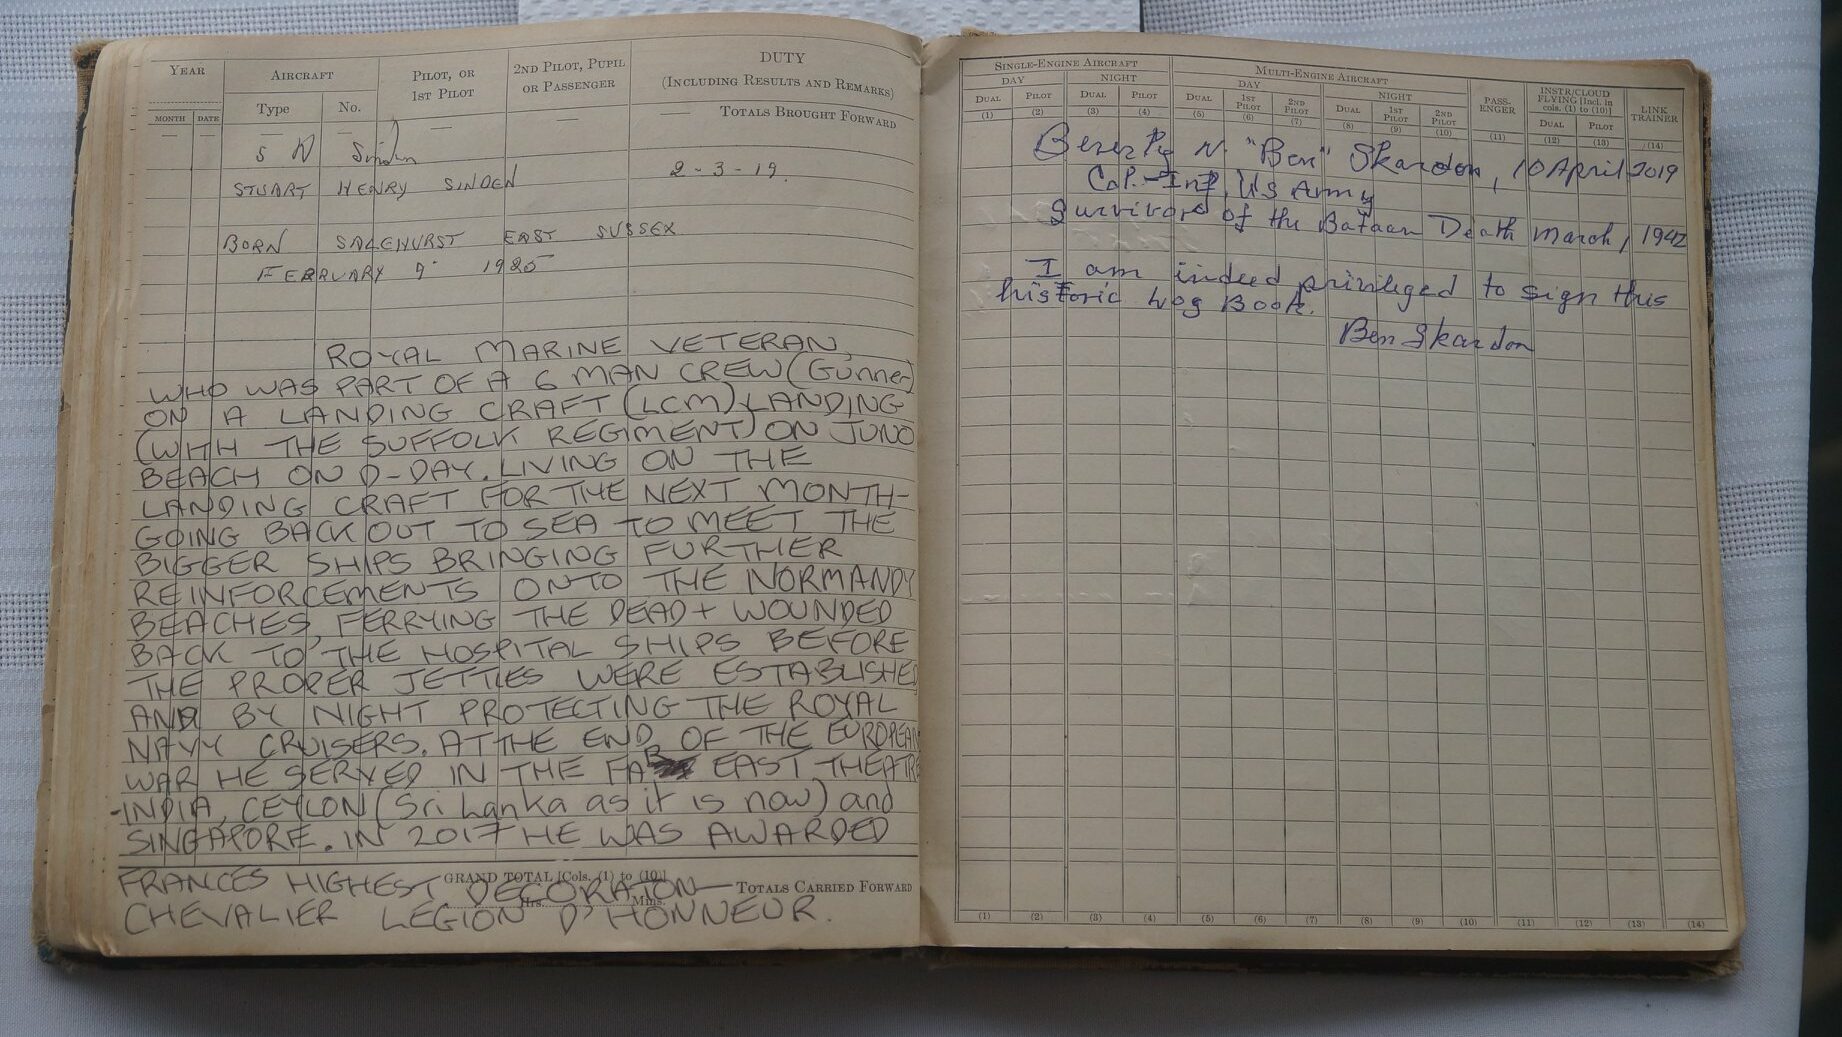 YEAR
AIRCRAFT
PILOT, OR
1ST PILOT
2ND PILOT, PUPIL
OR PASSENGER
DUTY
(INCLUDING RESULTS AND REMARKS)
MONTH DATE
Type No.
— — — — — — — TOTALS BROUGHT FORWARD
S H Sinden
STUART HENRY SINDEN 2-3-19.
BORN SALEHURST EAST SUSSEX
FEBRUARY 9 1925
ROYAL MARINE VETERAN,
WHO WAS PART OF A 6 MAN CREW (Gunner)
ON A LANDING CRAFT (LCM) LANDING
(WITH THE SUFFOLK REGIMENT) ON JUNO
BEACH ON D-DAY. LIVING ON THE
LANDING CRAFT FOR THE NEXT MONTH-
GOING BACK OUT TO SEA TO MEET THE
BIGGER SHIPS BRINGING FURTHER
REINFORCEMENTS ONTO THE NORMANDY
BEACHES, FERRYING THE DEAD + WOUNDED
BACK TO THE HOSPITAL SHIPS BEFORE
THE PROPER JETTIES WERE ESTABLISHED
AND BY NIGHT PROTECTING THE ROYAL
NAVY CRUISERS. AT THE END OF THE EUROPEAN
WAR HE SERVED IN THE FAR EAST THEATRE
-INDIA, CEYLON (Sri Lanka as it is now) and
SINGAPORE. IN 2017 HE WAS AWARDED
FRANCES HIGHEST DECORATON—
CHEVALIER LEGION D'HONNEUR.
GRAND TOTAL [Cols. (1) to (10)]
Hrs. Mins.
TOTALS CARRIED FORWARD
SINGLE-ENGINE AIRCRAFT MULTI-ENGINE AIRCRAFT
DAY NIGHT DAY NIGHT
PASS-
ENGER
INSTR/CLOUD
FLYING [Incl. in
cols. (1) to (10)]
LINK
TRAINER
DUAL PILOT DUAL PILOT DUAL 1ST PILOT 2ND PILOT DUAL 1ST PILOT 2ND PILOT DUAL PILOT
(1) (2) (3) (4) (5) (6) (7) (8) (9) (10) (11) (12) (13) (14)
Beverly N. "Ben" Skardon, 10 April 2019
Col.-Inf, US Army
Survivor of the Bataan Death March, 1942
I am indeed privileged to sign this
historic Log Book.
Ben Skardon
(1) (2) (3) (4) (5) (6) (7) (8) (9) (10) (11) (12) (13) (14)